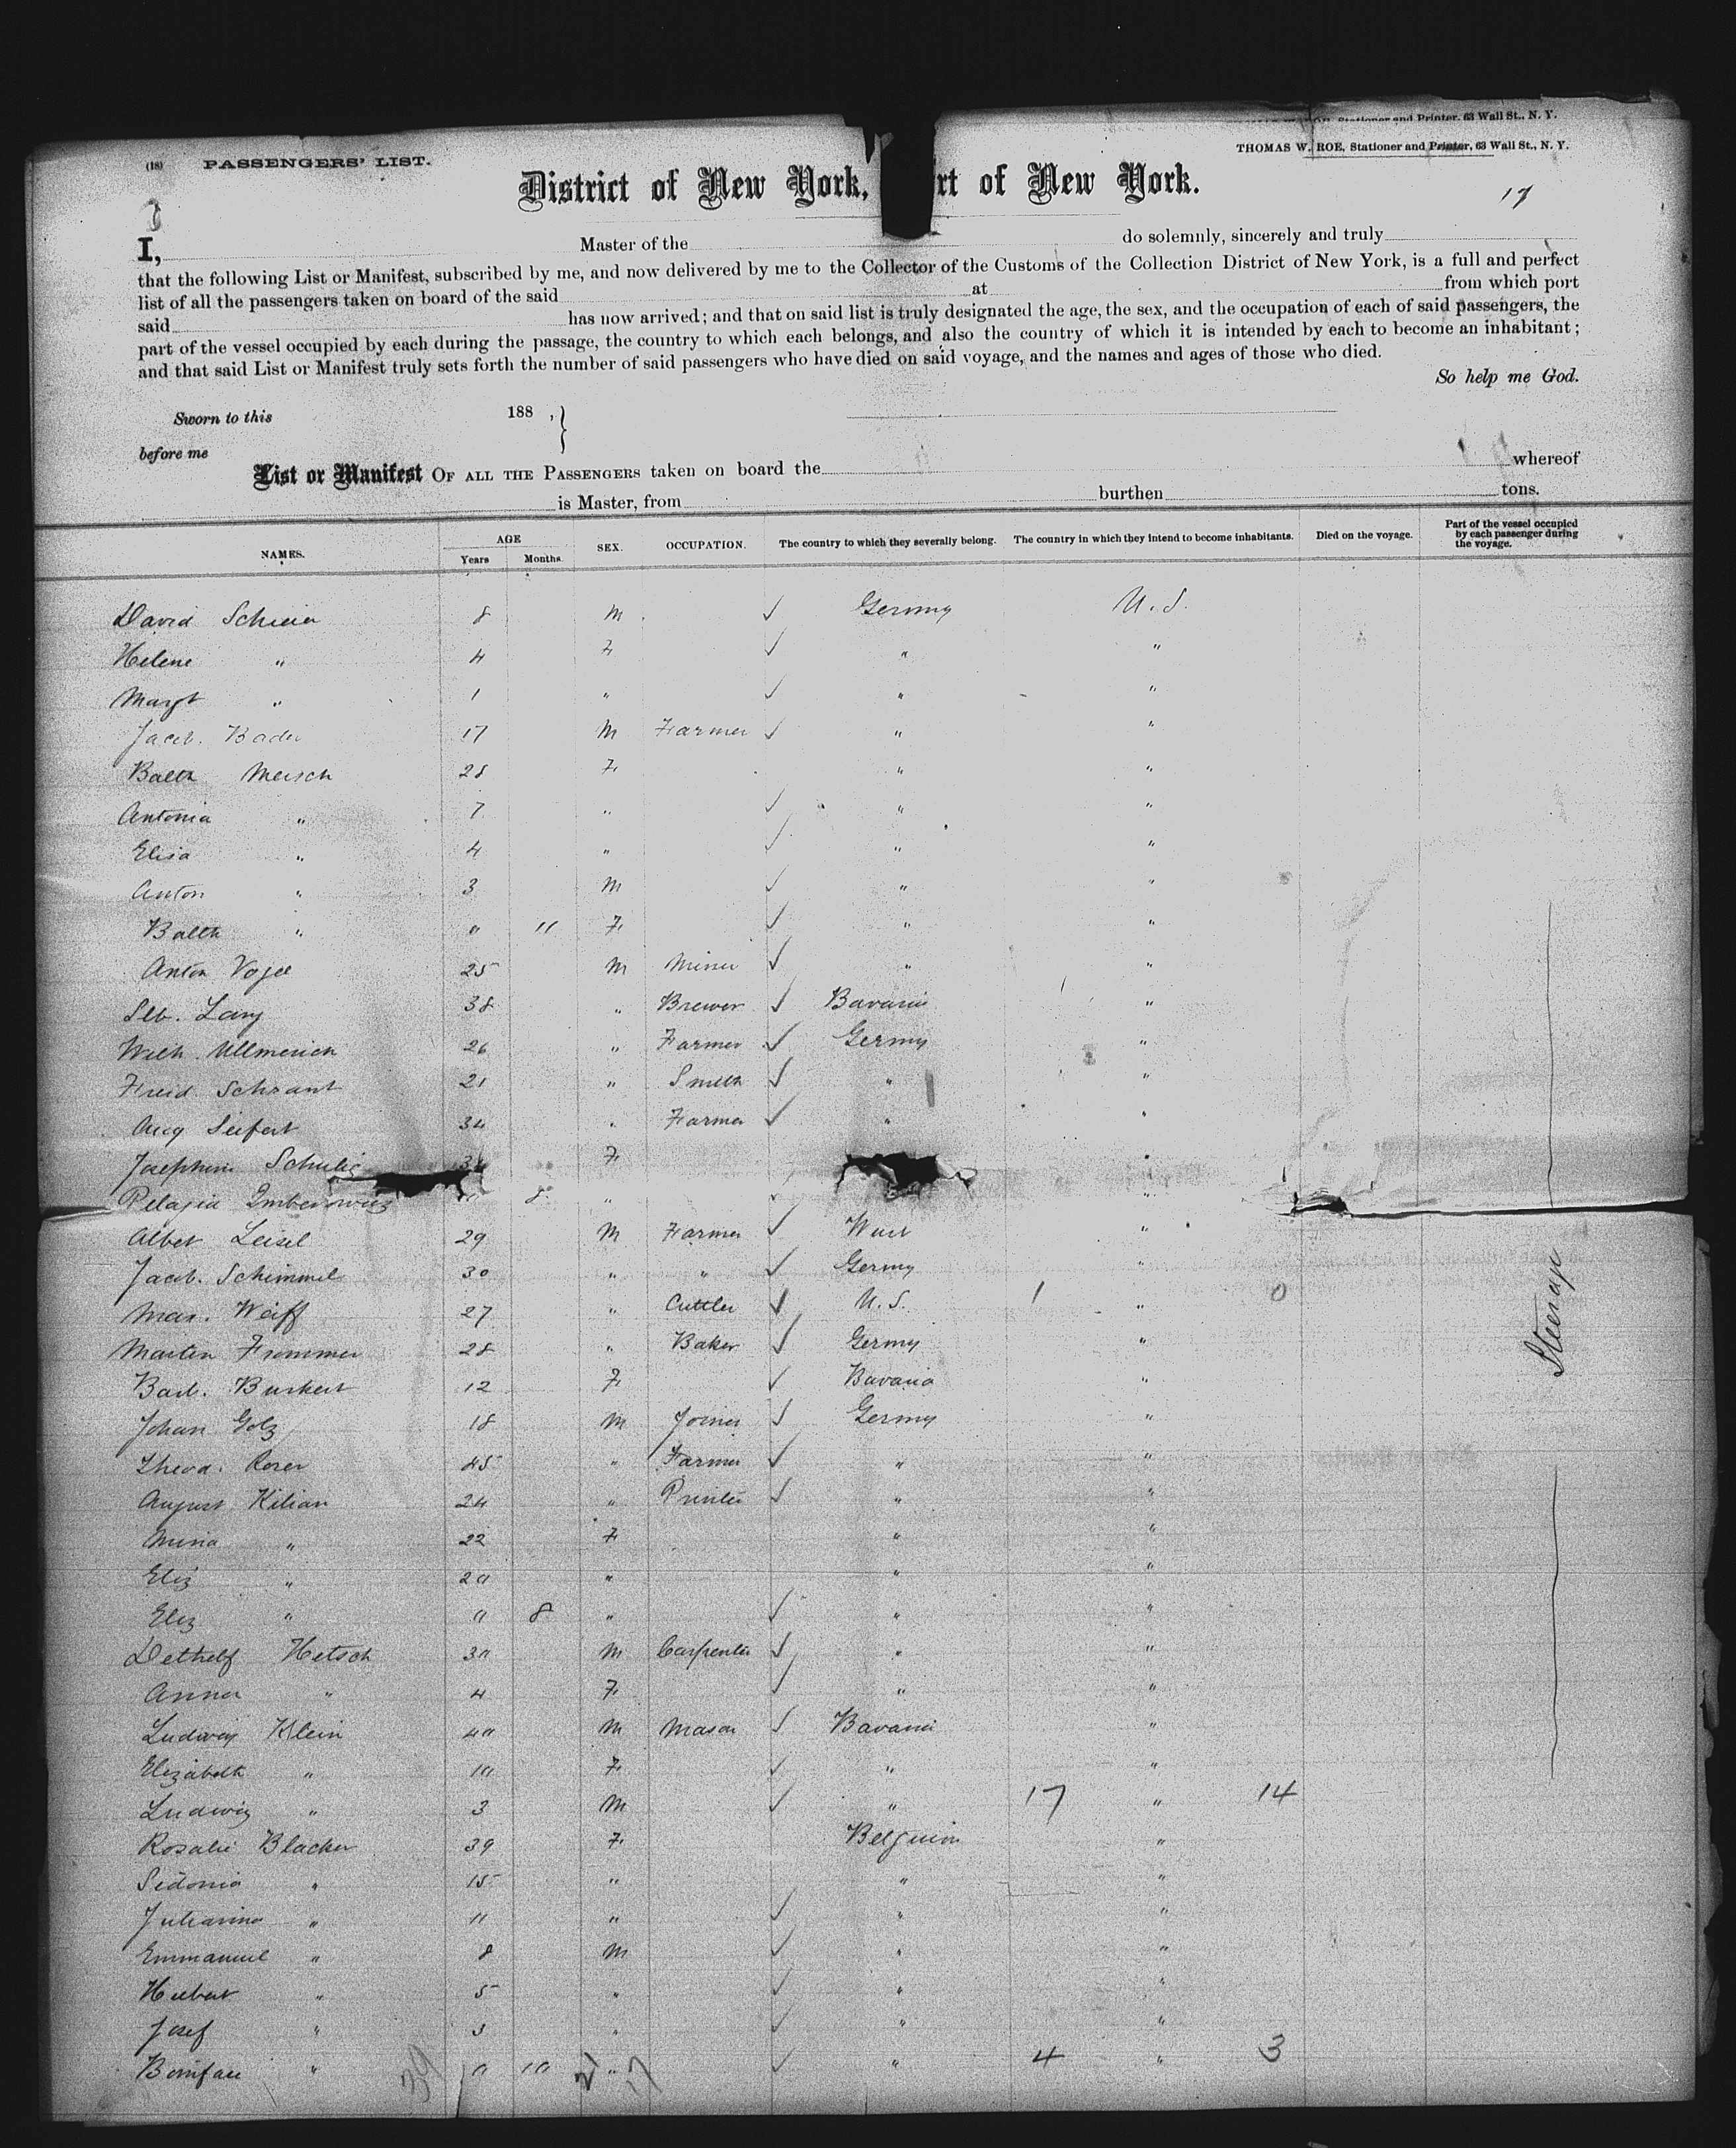 Stationer and Printer, 63 Wall St., N. Y.
(18) PASSENGERS' LIST.
THOMAS W. ROE, Stationer and Printer, 63 Wall St., N. Y.
District of New York, rt of New York.
17
I, Master of the do solemnly, sincerely and truly
that the following List or Manifest, subscribed by me, and now delivered by me to the Collector of the Customs of the Collection District of New York, is a full and perfect
list of all the passengers taken on board of the said at from which port
said has now arrived; and that on said list is truly designated the age, the sex, and the occupation of each of said passengers, the
part of the vessel occupied by each during the passage, the country to which each belongs, and also the country of which it is intended by each to become an inhabitant;
and that said List or Manifest truly sets forth the number of said passengers who have died on said voyage, and the names and ages of those who died.
So help me God.
Sworn to this 188 , }
before me
List or Manifest OF ALL THE PASSENGERS taken on board the whereof
is Master, from burthen tons.
NAMES. AGE Years Months. SEX. OCCUPATION. The country to which they severally belong. The country in which they intend to become inhabitants. Died on the voyage. Part of the vessel occupied by each passenger during the voyage.
David 8 M ✓ Germny U. S.
Helene " 4 F ✓ " "
Margt " 1 " ✓ " "
Jacob. Bader 17 M Farmer ✓ " "
Balth Meisch 28 F " "
Antonia " 7 " ✓ " "
Elisa " 4 " ✓ " "
Anton " 3 M ✓ " "
Balth " " 11 F ✓ " "
Anton Vogel 25 M Miner ✓ " "
Seb. Lang 38 " Brewer ✓ Bavaria "
Wilh. Ullmerich 26 " Farmer ✓ Germny "
Fried. Schrant 21 " Smith ✓ " "
Aug Seifert 34 " Farmer ✓ " "
Josephine Schulig F "
Pelagia 8 " ✓ "
Albet Leisel 29 M Farmer ✓ Wurt "
Jacob. Schimmel 30 " " ✓ Germy "
Max. Weiff 27 " Cuttler ✓ U. S. 1 " 0
Martin Frommer 28 " Baker ✓ Germy "
Barb. Burkert 12 F ✓ Bavaria "
Johan Golz 18 M Joiner ✓ Germy "
Theod. Roser 45 " Farmer ✓ " "
August Kilian 24 " Printer ✓ " "
Mina " 22 F " "
Eliz " 20 " " "
Eliz " 0 8 " ✓ " "
Dethelf Hetsch 30 M Carpenter ✓ " "
Anna " 4 F ✓ " "
Ludwig Klein 40 M Mason ✓ Bavaria "
Elizabeth " 10 F ✓ " "
Ludwig " 3 M ✓ " 17 " 14
Rosalie Blacker 39 F Belguim "
Sidonia " 15 " " "
Juliarina " 11 " ✓ " "
Emmanuel " 8 M ✓ " "
Hubert " 5 " ✓ " "
Josef " 3 " ✓ " "
Boniface " 0 10 " ✓ " 4 " 3
Steerage
39 21 17